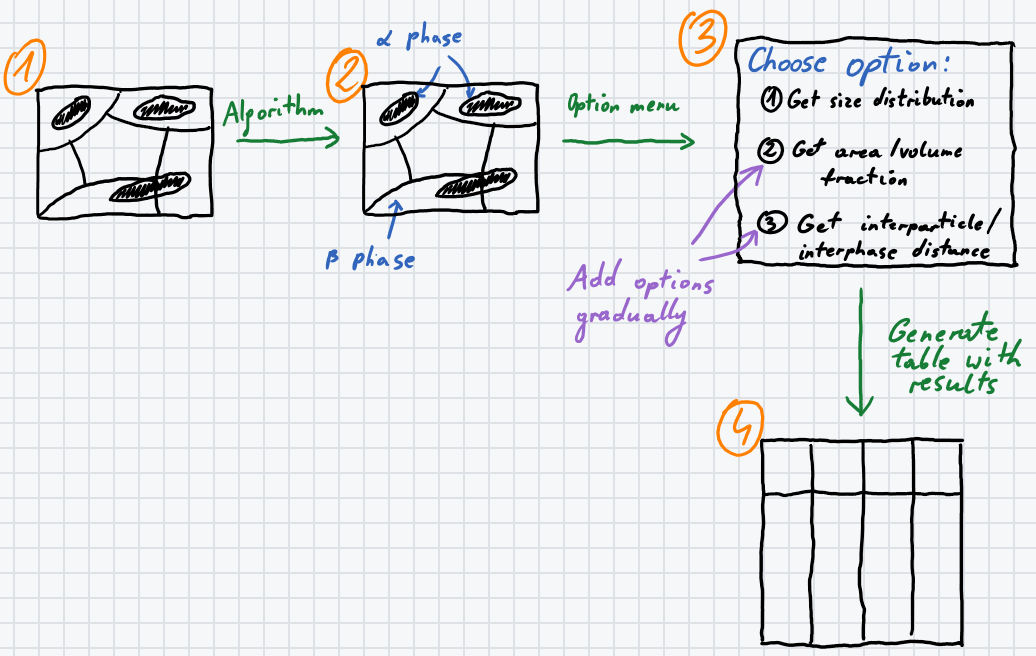 ①
Algorithm
②
α phase
β phase
Option menu
③
Choose option:
① Get size distribution
② Get area/volume
fraction
③ Get interparticle/
interphase distance
Add options
gradually
Generate
table with
results
④